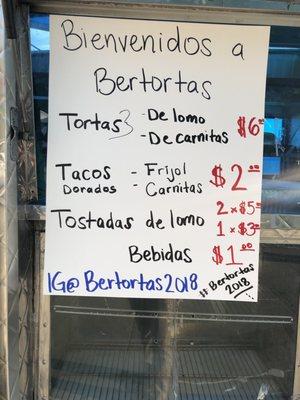 Bienvenidos a
Bertortas
Tortas - De lomo
- De carnitas $6.00
Tacos - Frijol
Dorados - Carnitas $2.00
Tostadas de lomo 2 x $5.00
1 x $3.00
Bebidas $1.00
IG@Bertortas2018
#Bertortas
2018